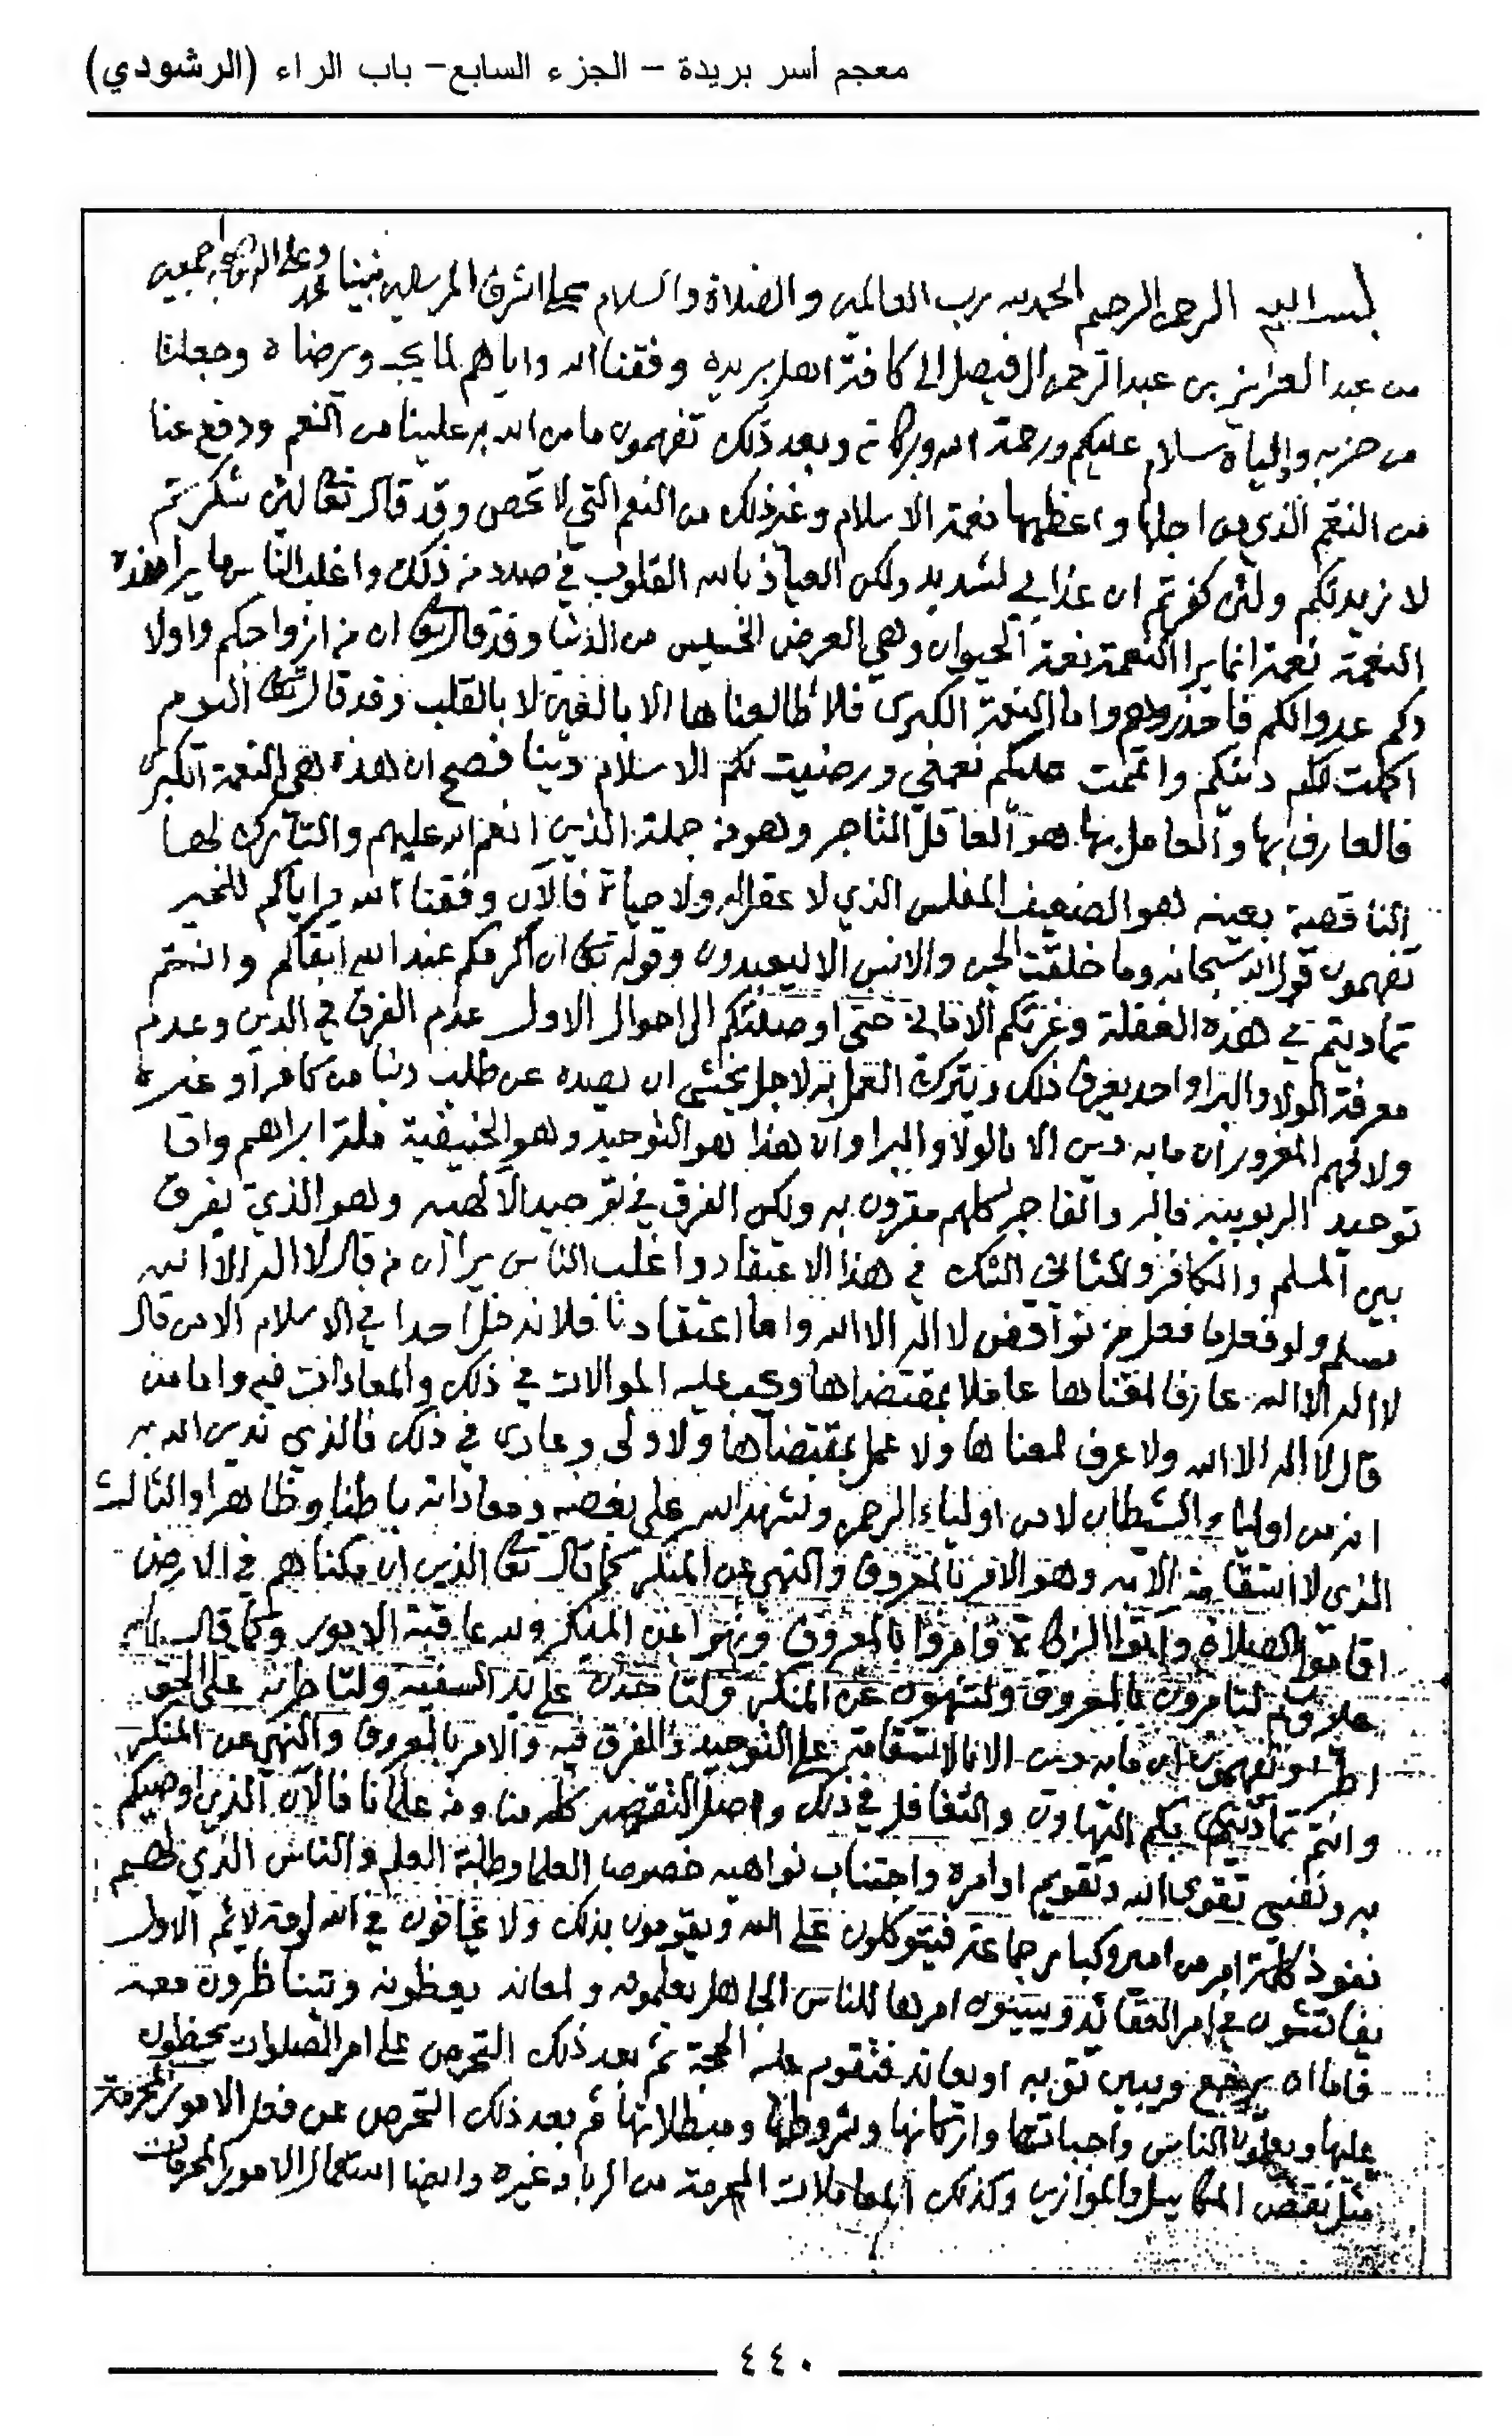 معجم أسر بريدة – الجزء السابع– باب الراء (الرشودي)
بسم الله الرحمن الرحيم الحمد لله رب العالمين والصلاة والسلام على اشرف المرسلين نبينا محمد وعلى اله وصحبه اجمعين
من عبد العزيز بن عبد الرحمن ال فيصل الى كافة اهل بريده وفقنا الله واياهم لما يحب ويرضاه وجعلنا
من حزبه واولياه سلام عليكم ورحمة الله وبركاته وبعد ذلك تفهمون ما من الله به علينا من النعم ودفع عنا
من النقم الذي من اجلها واعظمها نعمة الاسلام وغير ذلك من النعم التي لا تحصى وقد قال تعالى لئن شكرتم
لازيدنكم ولئن كفرتم ان عذابي لشديد ولكن العياذ بالله القلوب في صدد من ذلك واغلب الناس ما يرا هذه
النعمة نعمة انما يرا النعمة نعمة الحيوان وهي العرض الخسيس من الدنيا وقد قال تعالى ان من ازواجكم واولا
دكم عدوا لكم فاحذروهم واما النعمة الكبرى فلا طالعناها الا بالعين لا بالقلب وقد قال تعالى اليوم
اكملت لكم دينكم واتممت عليكم نعمتي ورضيت لكم الاسلام دينا فصح ان هذه هي النعمة الكبرى
فالعارف بها والعامل بها هو العاقل التاجر وهو من جملة الذين انعم الله عليهم والتارك لها
الناقصة بعينه هو الضعيف المفلس الذي لا عقل له ولا حياة فالآن وفقنا الله واياكم للخير
تفهمون قول الله سبحانه وما خلقت الجن والانس الا ليعبدون وقوله تعالى ان اكرمكم عند الله اتقاكم وانتم
تماديتم في هذه الغفلة وغرتكم الاماني حتى اوصلتكم الى احوال الاول عدم الفرق في الدين وعدم
معرفة الولا والبرا او احد يعرف ذلك ويترك العمل به لاجل يخشى ان يصده عن طلب دنيا من كافر او غيره
ولا فهم المغرور ان ما به دين الا بالولا والبرا وان هذا هو التوحيد وهو الحنيفية ملة ابراهيم واما
توحيد الربوبية فالبر والفاجر كلهم مقرون به ولكن الفرق في توحيد الالهيه وهو الذي يفرق
بين المسلم والكافر والثاني الشك في هذا الاعتقاد واغلب الناس يرا ان من قال لا اله الا الله
مسلم ولو فعل ما فعل من نواقض لا اله الا الله واما اعتقادنا فلا ندخل احدا في الاسلام الا من قال
لا اله الا الله عارفا لمعناها عاملا بمقتضاها ويجب عليه الموالات في ذلك والمعادات فيه واما من
قال لا اله الا الله ولا عرف لمعناها ولا عمل بمقتضاها ولا ولى وعادى في ذلك فالذي ندين الله به
انه من اولياء الشيطان لا من اولياء الرحمن ونشهد الله على بغضه ومعاداته باطنا وظاهرا والثالث
الذي لا استقامة الا به وهو الامر بالمعروف والنهي عن المنكر كما قال تعالى الذين ان مكناهم في الارض
اقاموا الصلاة واتوا الزكاة وامروا بالمعروف ونهوا عن المنكر ولله عاقبة الامور وكما قال
لتامرون بالمعروف ولتنهون عن المنكر ولتاخذن على يد السفيه ولتاطرنه على الحق
اطرا وتفهمون ان ما به دين الا بالاستقامة على التوحيد والفرق فيه والامر بالمعروف والنهي عن المنكر
وانتم تمادى بكم التهاون والتغافل في ذلك واصل التقصير كله منا ومن علمانا فالآن الذي اوصيكم
به ونفسي تقوى الله وتقويم اوامره واجتناب نواهيه خصوصا العلما وطلبة العلم والناس الذي لهم
نفوذ كلمة امر من امير وكبار جماعة فيتوكلون على الله ويقومون بذلك ولا يخافون في الله لومة لائم الاول
يفاتشون في امر العقائد ويبينون امرها للناس الجاهل يعلمونه والمعاند يعظونه ويتناظرون معه
فاما ان يرجع ويبين توبه او يعاند فتقوم عليه الحجة ثم بعد ذلك التحرص على امر الصلوات يحظون
عليها ويعلمون الناس واجباتها واركانها وشروطها ومبطلاتها ثم بعد ذلك التحرص عن فعل الامور المحرمة
مثل نقص المكاييل والموازين وكذلك المعاملات المحرمة من الربا وغيره وايضا استعمال الامور المحرمات
٤٤٠